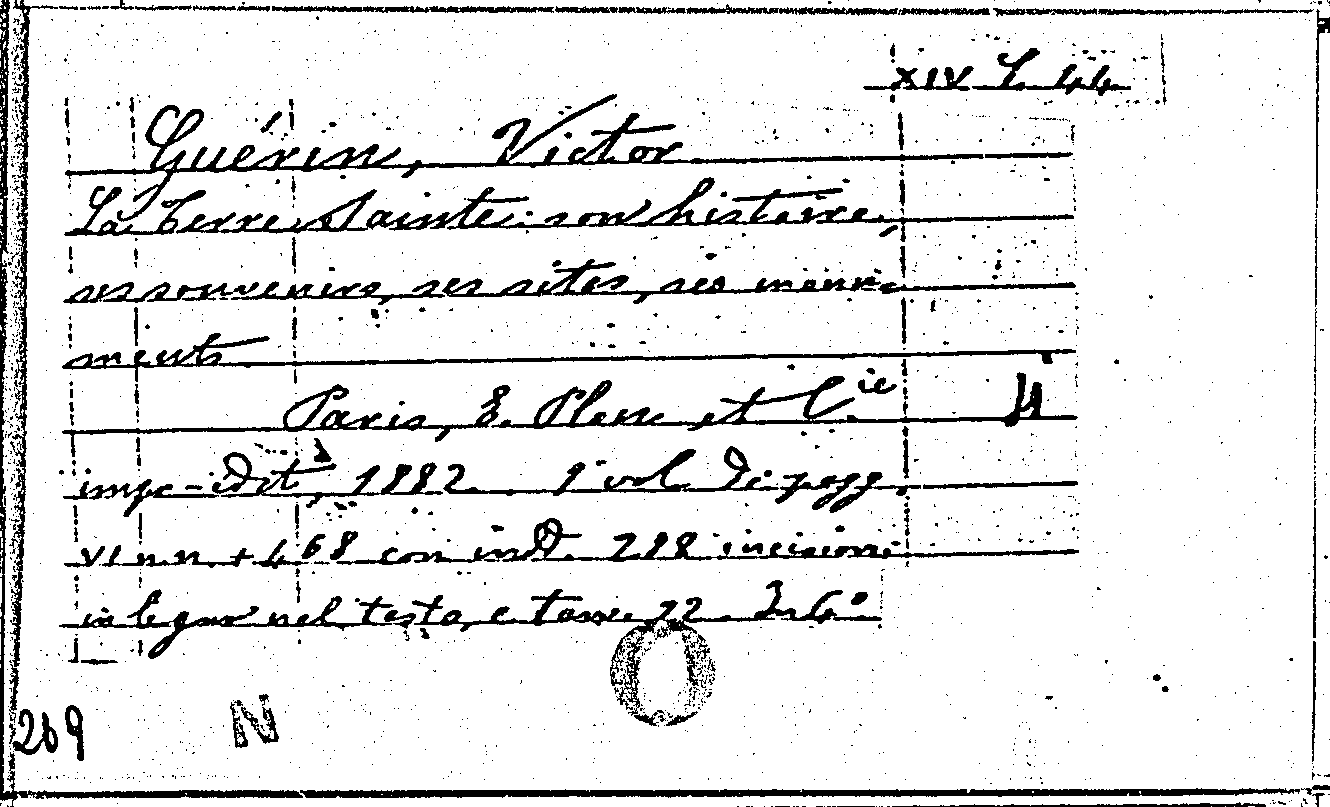 XIV L. 44
Guérin, Victor
La Terre Sainte: son histoire,
ses souvenirs, ses sites, ses monu-
ments
Paris, E. Plon et C.ie
imp.-édit., 1882. 1 vol. di pagg.
VI n.n. + 468 con ind. 288 incisioni
in legno nel testo, e tavv. 22. In 4°
269
N